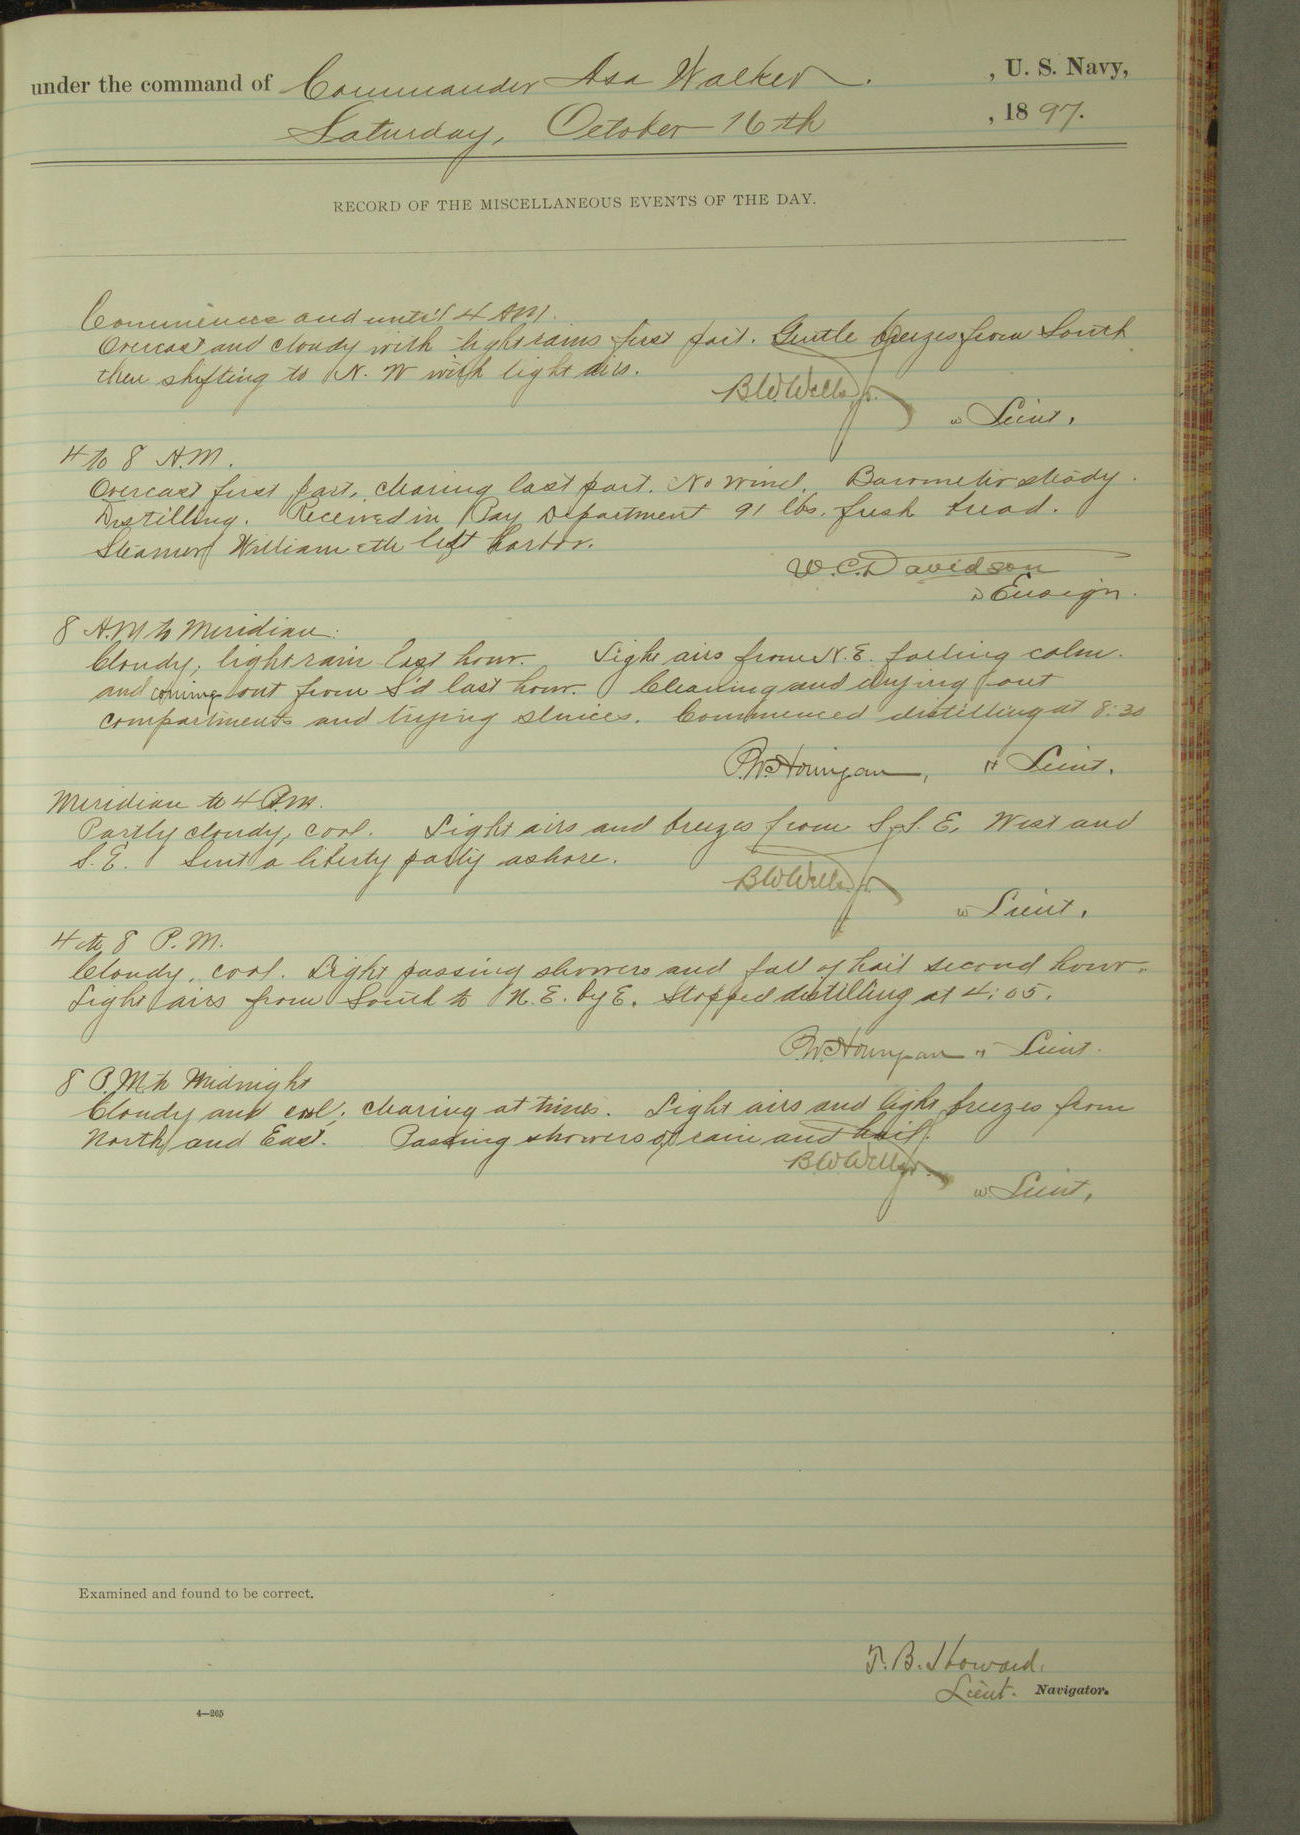 under the command of Commander Asa Walker. , U. S. Navy,
Saturday, October 16th , 1897.
RECORD OF THE MISCELLANEOUS EVENTS OF THE DAY.
Commences and until 4 AM.
Overcast and cloudy with light rains first part. Gentle breezes from South
then shifting to N. W with light airs.
B.W. Wells Jr.
Lieut.
4 to 8 A.M.
Overcast first part, clearing last part. No wind. Barometer steady.
Distilling. Received in Pay Department 91 lbs. fresh bread.
Steamer left harbor.
W. C. Davidson
Ensign.
8 A.M to Meridian:
Cloudy, light rain last hour. Light airs from N.E. falling calm.
and coming out from S'd last hour. Cleaning and drying out
compartments and trying sluices. Commenced distilling at 8:30
P.W. Hourigan, Lieut.
Meridian to 4 P.M.
Partly cloudy, cool. Light airs and breezes from S.S.E. West and
S.E. Sent a liberty party ashore.
B.W. Wells Jr.
Lieut.
4 to 8 P.M.
Cloudy, cool. Light passing showers and fall of hail second hour.
Light airs from South to N.E. by E. Stopped distilling at 4:05.
P.W. Hourigan Lieut.
8 P.M to Midnight
Cloudy and cool; clearing at times. Light airs and light breezes from
North and East. Passing showers of rain and hail.
B.W. Wells Jr.
Lieut,
Examined and found to be correct.
T. B. Howard.
Lieut. Navigator.
4—265